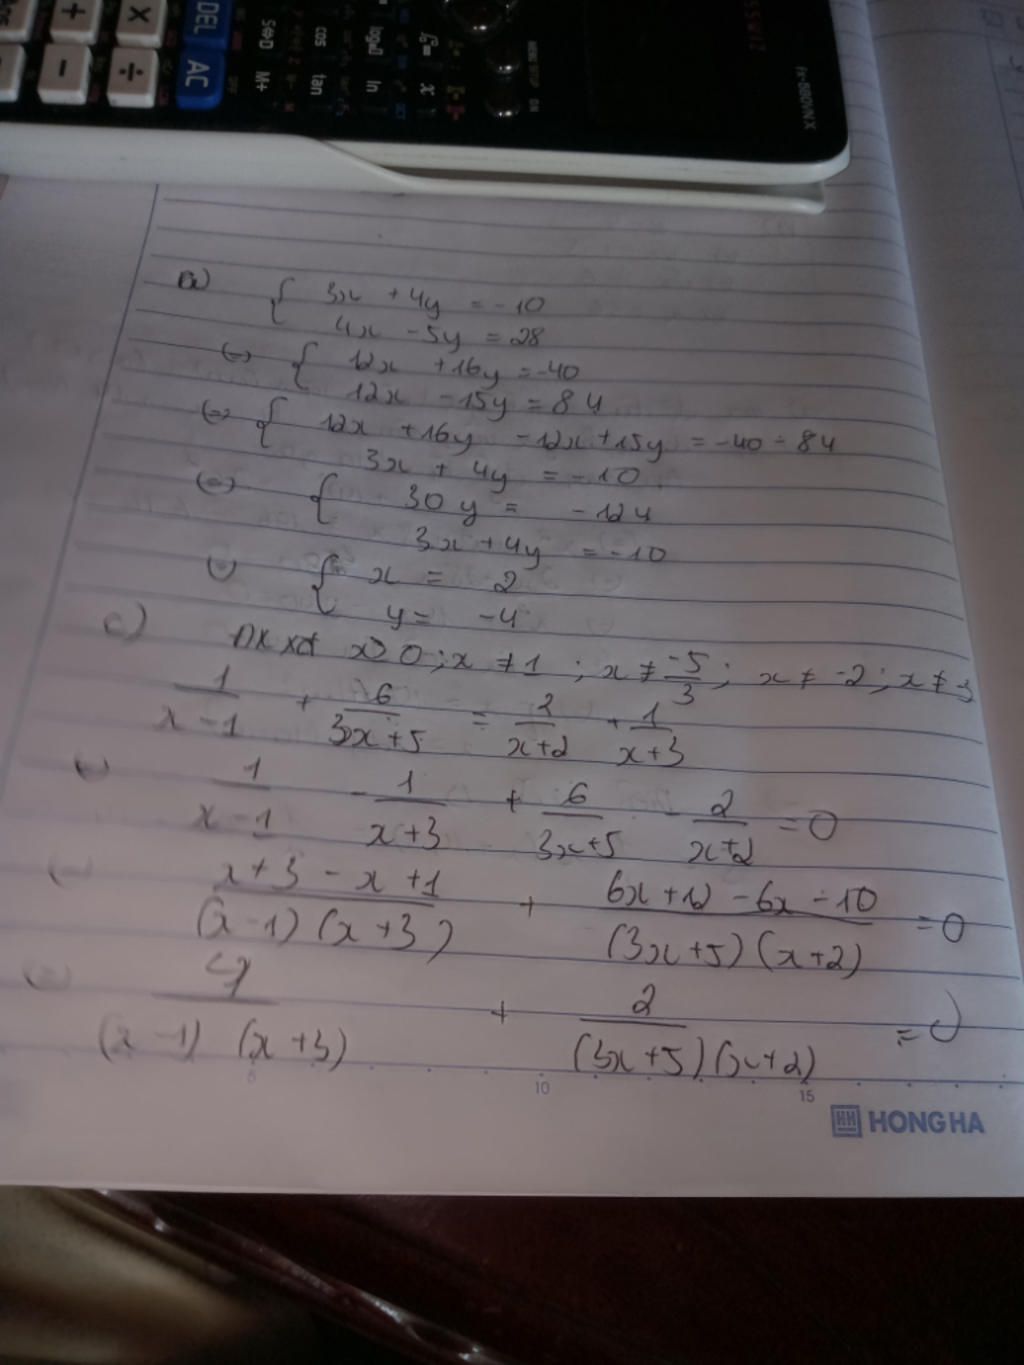 DEL
AC
S⇔D
M+
cos
tan
log
ln
x
fx-880VNX
a) { 3x + 4y = -10
4x - 5y = 28
(=) { 12x + 16y = -40
12x - 15y = 84
(=) { 12x + 16y - 12x + 15y = -40 - 84
3x + 4y = -10
(=) { 30y = -124
3x + 4y = -10
{ x = 2
y = -4
c) x ≥ 0 ; x ≠ 1 ; x ≠ -5/3 ; x ≠ -2 ; x ≠ 3
1/(x-1) + 6/(3x+5) = 2/(x+2) + 1/(x+3)
1/(x-1) - 1/(x+3) + 6/(3x+5) - 2/(x+2) = 0
(x+3-x+1)/((x-1)(x+3)) + (6x+12-6x-10)/((3x+5)(x+2)) = 0
4/((x-1)(x+3)) + 2/((3x+5)(x+2)) = 0
10 15
HH HONG HA